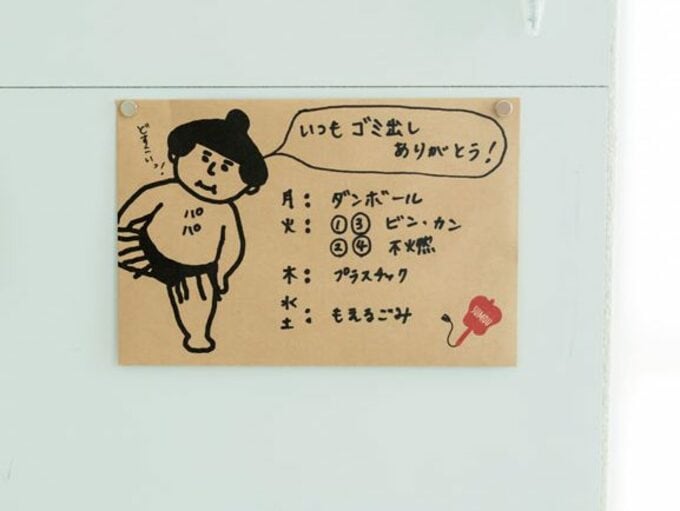 どすこいっ!
いつも ゴミ出し
ありがとう!
パパ
月: ダンボール
火: ①③ ビン・カン
②④ 不火燃
木: プラスチック
水
土: もえるごみ
SUMOU